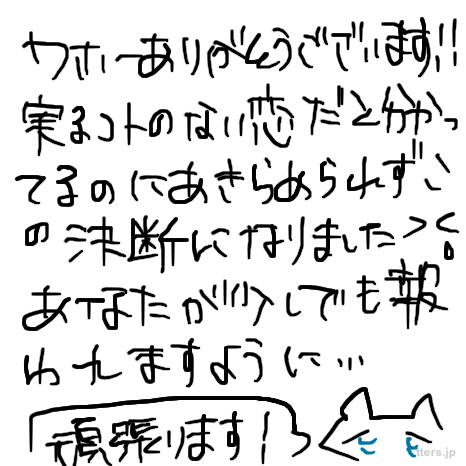 ウホーありがとうございます!!
実るコトのない恋だと分かっ
てるのにあきらめられずこ
の決断になりました><。
あなたが少しでも報
われますように…
頑張ります!
tters.jp